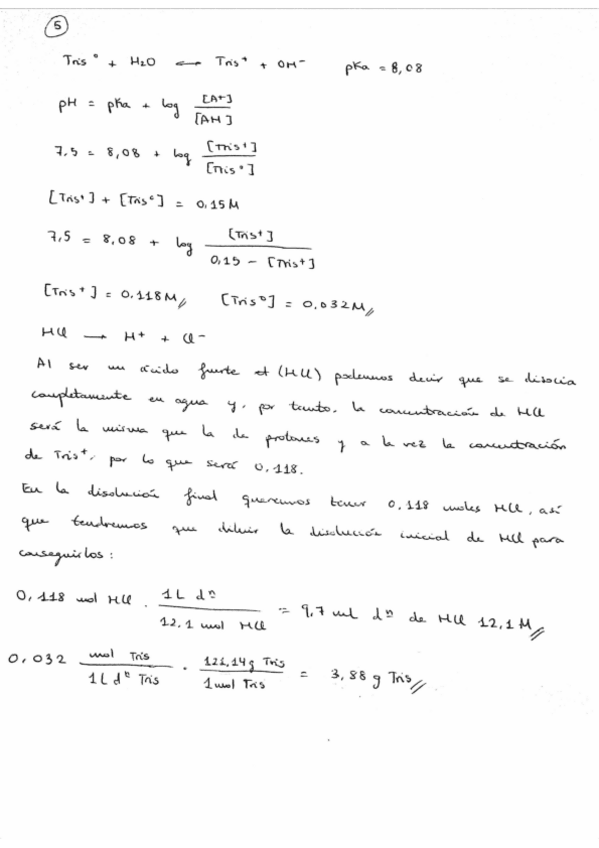 5
Tris° + H2O ⟷ Tris⁺ + OH⁻ pKa = 8,08
pH = pKa + log [A⁺] / [AH]
7,5 = 8,08 + log [Tris⁺] / [Tris°]
[Tris⁺] + [Tris°] = 0,15M
7,5 = 8,08 + log [Tris⁺] / 0,15 - [Tris⁺]
[Tris⁺] = 0,118M// [Tris°] = 0,032M//
HCl → H⁺ + Cl⁻
Al ser un ácido fuerte el (HCl) podemos decir que se disocia
completamente en agua y, por tanto, la concentración de HCl
será la misma que la de protones y a la vez la concentración
de Tris⁺, por lo que será 0,118.
En la disolución final queremos tener 0,118 moles HCl, así
que tendremos que diluir la disolución inicial de HCl para
conseguirlos:
0,118 mol HCl · 1L dⁿ / 12,1 mol HCl = 9,7 ml dⁿ de HCl 12,1M//
0,032 mol Tris / 1L dⁿ Tris · 121,14g Tris / 1mol Tris = 3,88 g Tris//